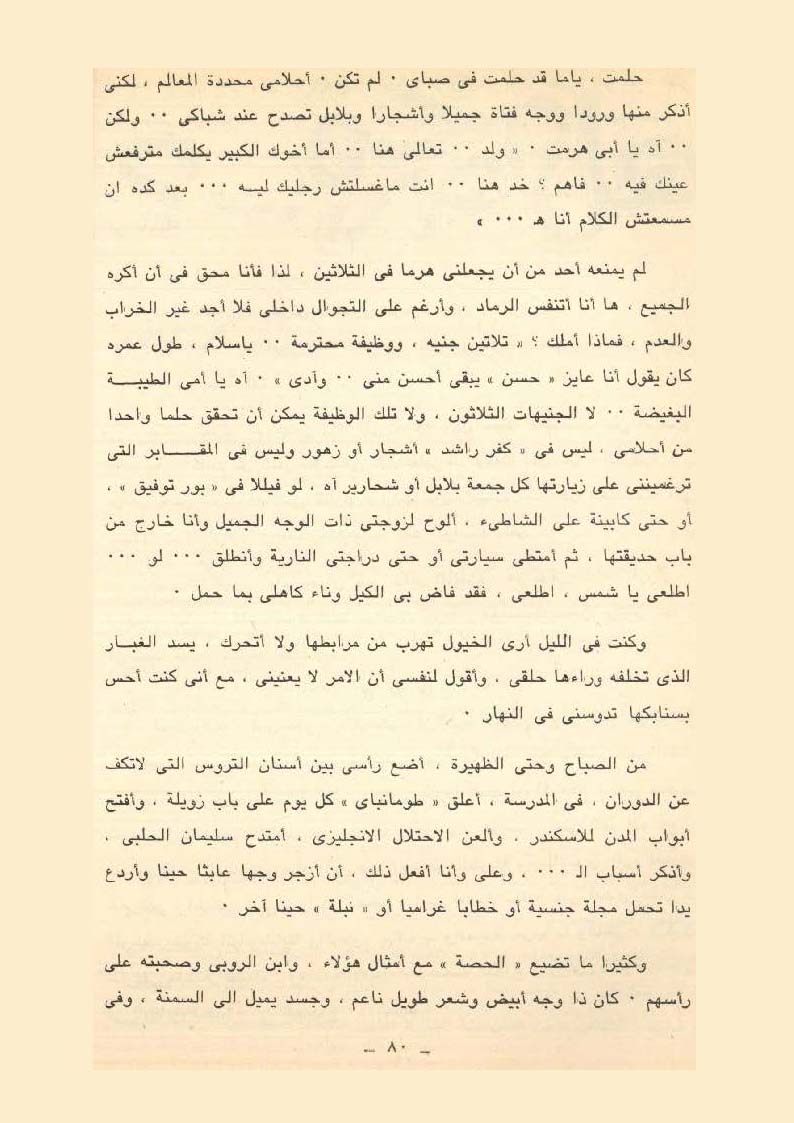 حلمت ، ياما قد حلمت فى صباى ٠ لم تكن ٠ أحلامى محددة المعالم ، لكنى
أذكر منها ورودا ووجه فتاة جميلا وأشجارا وبلابل تصدح عند شباكى ٠٠ ولكن
٠٠ آه يا أبى هرمت ٠ « ولد ٠٠ تعالى هنا ٠٠ أما أخوك الكبير يكلمك مترفعش
عينك فيه ٠٠ فاهم ؟ خد هنا ٠٠ انت ماغسلتش رجليك ليــه ٠٠٠ بعد كده ان
مسمعتش الكلام أنا هـ ٠٠٠ »
لم يمنعه أحد من أن يجعلنى هرما فى الثلاثين ، لذا فأنا محق فى أن أكره
الجميع ، ها أنا أتنفس الرماد ، وأرغم على التجوال داخلى فلا أجد غير الخراب
والعدم ، فماذا أملك ؟ « تلاتين جنيه ، ووظيفة محترمة ٠٠ ياسلام ، طول عمره
كان يقول أنا عايز « حسن » يبقى أحسن منى ٠٠ وآدى » ٠ آه يا أمى الطيبــــة
البغيضة ٠٠ لا الجنيهات الثلاثون ، ولا تلك الوظيفة يمكن أن تحقق حلما واحدا
من أحلامى ، ليس فى « كفر راشد » أشجار أو زهور وليس فى المقـــــابر التى
ترغميننى على زيارتها كل جمعة بلابل أو شحارير آه ، لو فيللا فى « بور توفيق » ،
أو حتى كابينة على الشاطىء ، ألوح لزوجتى ذات الوجه الجميل وأنا خارج من
باب حديقتها ، ثم أمتطى سيارتى أو حتى دراجتى النارية وأنطلق ٠٠٠ لو ٠٠٠
اطلعى يا شمس ، اطلعى ، فقد فاض بى الكيل وناء كاهلى بما حمل ٠
وكنت فى الليل أرى الخيول تهرب من مرابطها ولا أتحرك ، يسد الغبـار
الذى تخلفه وراءها حلقى ، وأقول لنفسى أن الامر لا يعنينى ، مع أنى كنت أحس
بسنابكها تدوسنى فى النهار ٠
من الصباح وحتى الظهيرة ، أضع رأسى بين أسنان التروس التى لاتكف
عن الدوران ، فى المدرسة ، أعلق « طومانباى » كل يوم على باب زويلة ، وأفتح
أبواب المدن للاسكندر ، وألعن الاحتلال الانجليزى ، أمتدح سليمان الحلبى ،
وأذكر أسباب الـ ٠٠٠ ، وعلى وأنا أفعل ذلك ، أن أزجر وجها عابثا حينا وأردع
يدا تحمل مجلة جنسية أو خطابا غراميا أو « نبلة » حينا آخر ٠
وكثيرا ما تضيع « الحصة » مع أمثال هؤلاء ، وابن الروبى وصحبته على
رأسهم ٠ كان ذا وجه أبيض وشعر طويل ناعم ، وجسد يميل الى السمنة ، وفى
ـ ٨٠ ـ